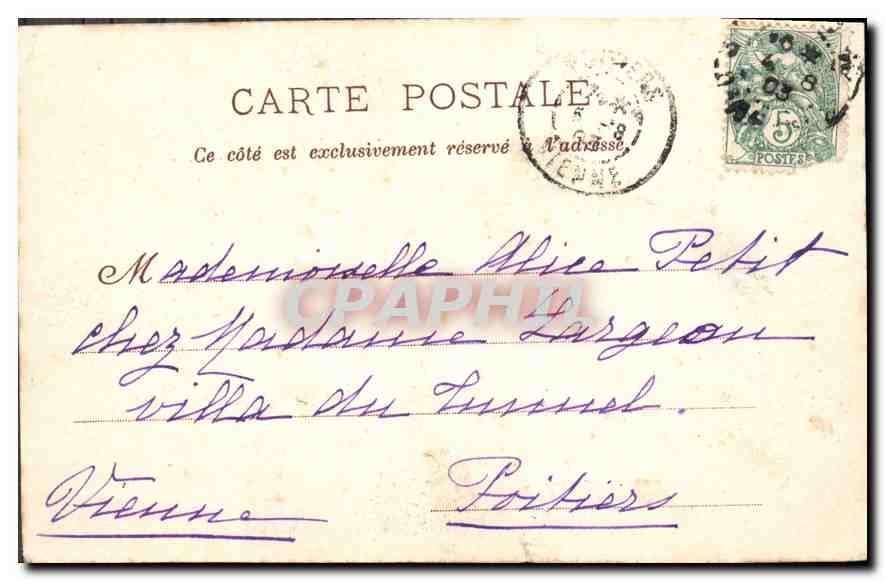 CARTE POSTALE
Ce côté est exclusivement réservé à l'adresse
VIENNE
03
5c
POSTES
Mademoiselle Alice Petit
CPAPHIL
chez Madame Largeau
villa du Tunnel.
Vienne Poitiers